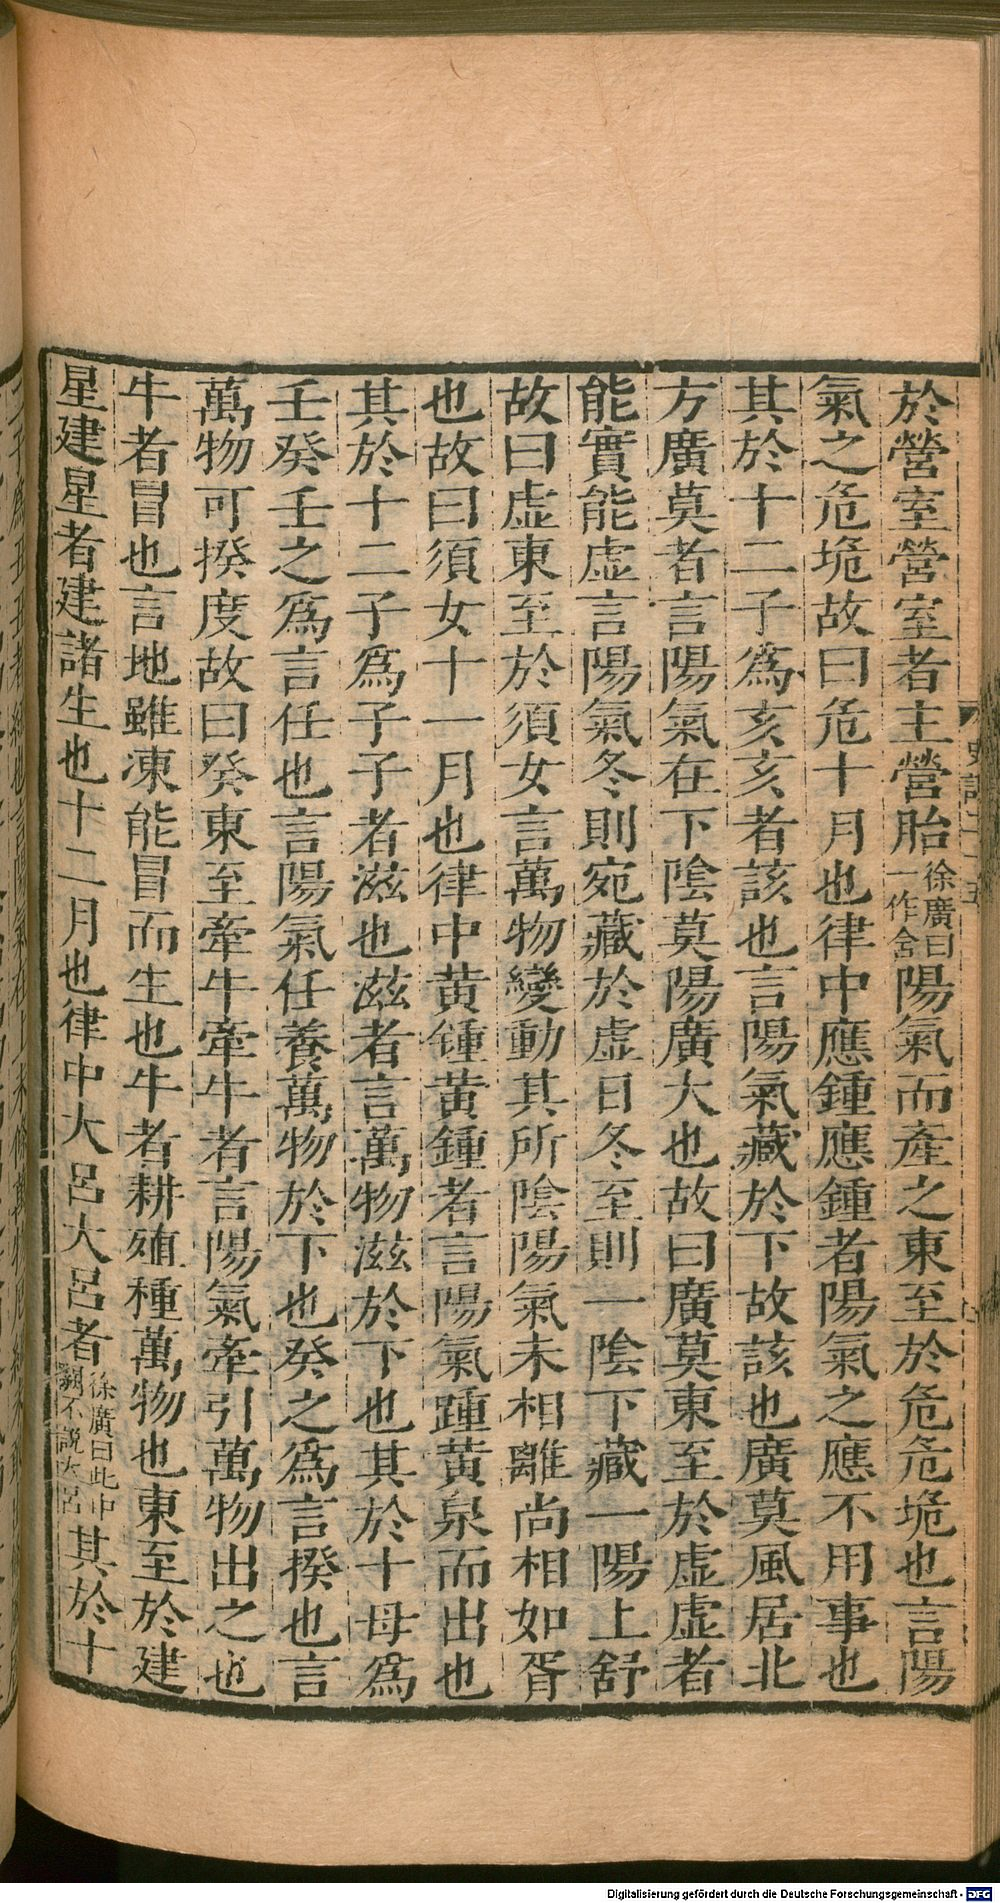 於營室營室者主營胎徐廣曰一作含陽氣而產之東至於危危垝也言陽
氣之危垝故曰危十月也律中應鍾應鍾者陽氣之應不用事也
其於十二子爲亥亥者該也言陽氣藏於下故該也廣莫風居北
方廣莫者言陽氣在下陰莫陽廣大也故曰廣莫東至於虛虛者
能實能虛言陽氣冬則宛藏於虛日冬至則一陰下藏一陽上舒
故曰虛東至於須女言萬物變動其所陰陽氣未相離尚相如胥
也故曰須女十一月也律中黃鍾黃鍾者言陽氣踵黃泉而出也
其於十二子爲子子者滋也滋者言萬物滋於下也其於十母爲
壬癸壬之爲言任也言陽氣任養萬物於下也癸之爲言揆也言
萬物可揆度故曰癸東至牽牛牽牛者言陽氣牽引萬物出之也
牛者冒也言地雖凍能冒而生也牛者耕殖種萬物也東至於建
星建星者建諸生也十二月也律中大呂大呂者徐廣曰此中闕不說大呂其於十
Digitalisierung gefördert durch die Deutsche Forschungsgemeinschaft - DFG